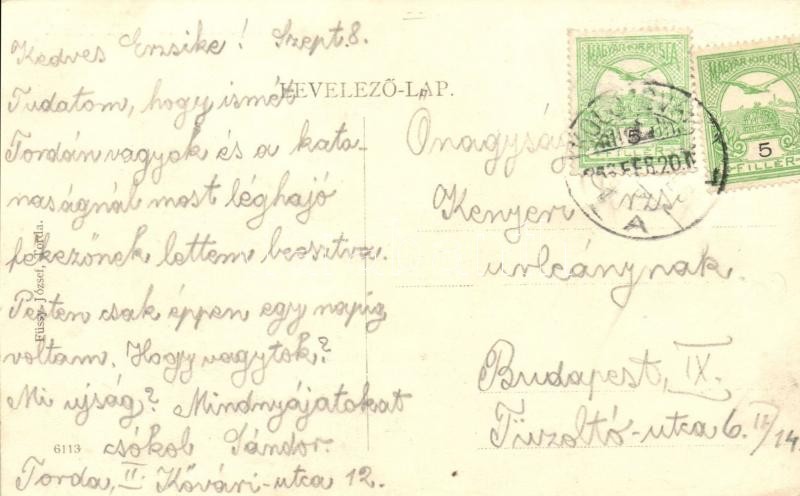 Kedves Erzsike! Szept. 8.
Tudatom, hogy ismét
Tordán vagyok és a kato-
naságnál most léghajó
fékezőnek lettem beosztva.
Pesten csak éppen egy napig
voltam. Hogy vagytok?
Mi ujság? Mindnyájatokat
csókol Sándor.
Torda, II. Kővári-utca 12.
LEVELEZŐ-LAP.
Füssy József, Torda.
6113
MAGYAR KIR. POSTA
5
FILLÉR
MAGYAR KIR. POSTA
5
FILLÉR
FEB. 20
A
Önagysága
Kenyeri Erzsi
urleánynak.
Budapest, IX.
Tüzoltó-utca 6. II/14.